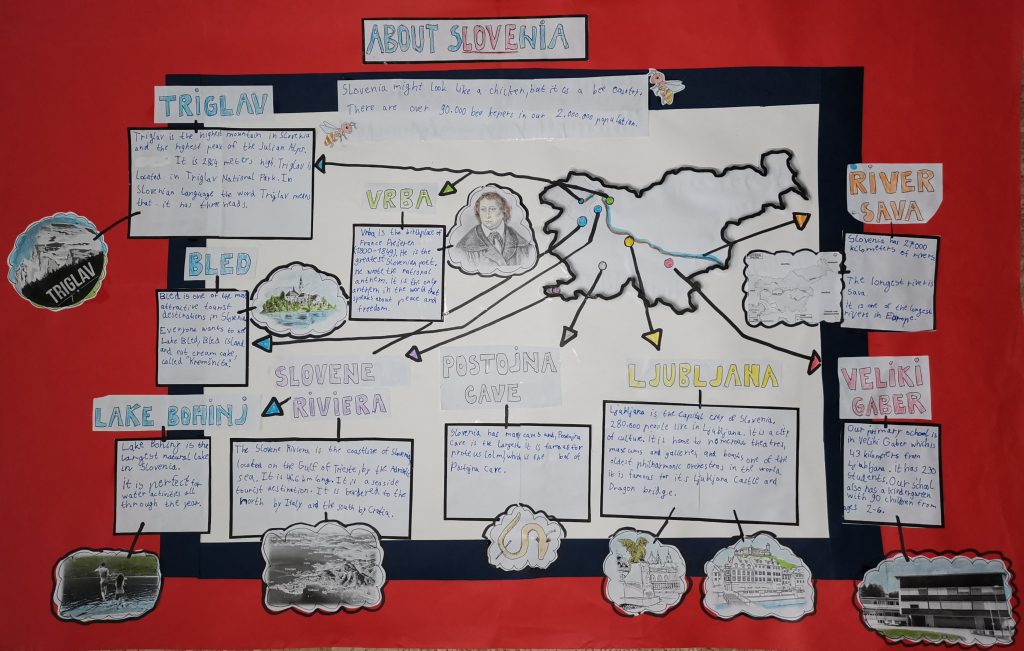 ABOUT SLOVENIA
Slovenia might look like a chicken, but it is a bee country.
There are over 30.000 bee kepers in our 2.000.000 population.
TRIGLAV
Triglav is the highest mountain in Slovenia
and the highest peak of the Julian Alps.
It is 2864 meters high. Triglav is
located in Triglav National Park. In
Slovenian language the word Triglav means
that it has three heads.
TRIGLAV
VRBA
Vrba is the birthplace of
France Prešeren
(1800-1849). He is the
greatest Slovenian poet.
He wrote the national
anthem. It is the only
anthem in the world that
speaks about peace and
freedom.
BLED
Bled is one of the most
attractive tourist
destinations in Slovenia.
Everyone wants to see
Lake Bled, Bled island
and eat cream cake,
called "kremšnita."
LAKE BOHINJ
Lake Bohinj is the
largest natural lake
in Slovenia.
it is perfect for
water activities all
through the year.
SLOVENE
RIVIERA
The Slovene Riviera is the coastline of Slovenia,
located on the Gulf of Trieste, by the Adriatic
sea. It is 46.6 km long. It is a seaside
tourist destination. It is bordered to the
north by Italy and the south by Croatia.
POSTOJNA
CAVE
Slovenia has many caves and Postojna
Cave is the largest. It is famous for
proteus (olm) which is the of
Postojna Cave.
LJUBLJANA
Ljubljana is the capital city of Slovenia.
280.000 people live in Ljubljana. It is a city
of culture. It is home to numerous theatres,
museums and galleries and boasts one of the
oldest philharmonic orchestras in the world.
It is famous for it's Ljubljana Castle and
Dragon bridge.
RIVER
SAVA
Slovenia has 27.000
kilometers of rivers.
The longest river is
Sava.
It is one of the longest
rivers in Europe.
VELIKI
GABER
Our primary school is
in Veliki Gaber which is
43 kilometers from
Ljubljana. It has 230
students. Our school
also has a kindergarten
with 90 children from
ages 2-6.